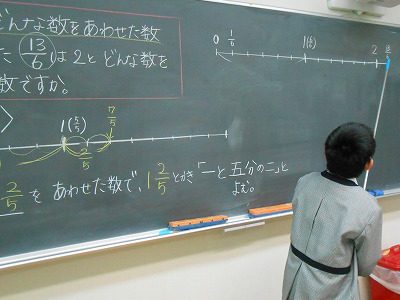 どんな数をあわせた数
た 13/6 は2と どんな数を
数ですか。
0 1/6 1(6/6) 2
1(5/5) 7/5
2/5
2/5 を あわせた数で、1 2/5 とかき「一と五分の二」と
よむ。